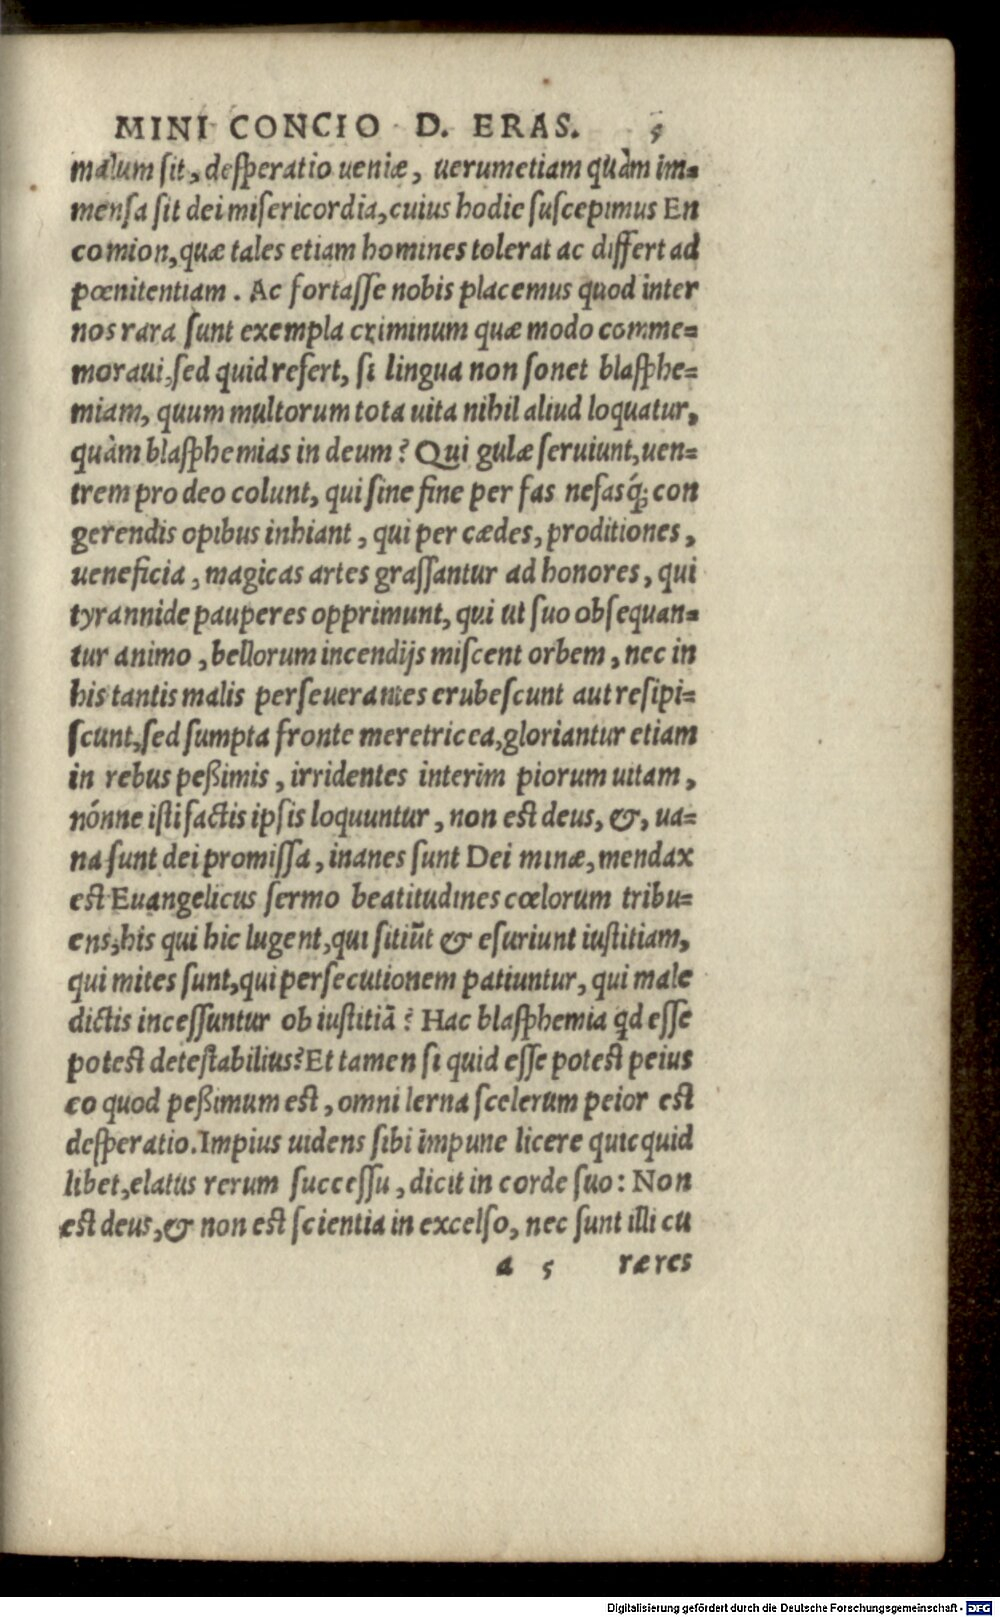 MINI CONCIO D. ERAS. 5
malum sit, desperatio ueniæ, uerumetiam quàm im=
mensa sit dei misericordia, cuius hodie suscepimus En
comion, quæ tales etiam homines tolerat ac differt ad
pœnitentiam. Ac fortasse nobis placemus quod inter
nos rara sunt exempla criminum quæ modo comme=
moraui, sed quid refert, si lingua non sonet blasphe=
miam, quum multorum tota uita nihil aliud loquatur,
quàm blasphemias in deum? Qui gulæ seruiunt, uen=
trem pro deo colunt, qui sine fine per fas nefasq́; con
gerendis opibus inhiant, qui per cædes, proditiones,
ueneficia, magicas artes grassantur ad honores, qui
tyrannide pauperes opprimunt, qui ut suo obsequan=
tur animo, bellorum incendijs miscent orbem, nec in
his tantis malis perseuerantes erubescunt aut resipi=
scunt, sed sumpta fronte meretricea, gloriantur etiam
in rebus peßimis, irridentes interim piorum uitam,
nónne isti factis ipsis loquuntur, non est deus, &, ua=
na sunt dei promissa, inanes sunt Dei minæ, mendax
est Euangelicus sermo beatitudines cœlorum tribu=
ens, his qui hic lugent, qui sitiūt & esuriunt iustitiam,
qui mites sunt, qui persecutionem patiuntur, qui male
dictis incessuntur ob iustitiā? Hac blasphemia qd esse
potest detestabilius? Et tamen si quid esse potest peius
eo quod peßimum est, omni lerna scelerum peior est
desperatio. Impius uidens sibi impune licere quicquid
libet, elatus rerum successu, dicit in corde suo: Non
est deus, & non est scientia in excelso, nec sunt illi cu
a 5 ræ res
Digitalisierung gefördert durch die Deutsche Forschungsgemeinschaft - DFG